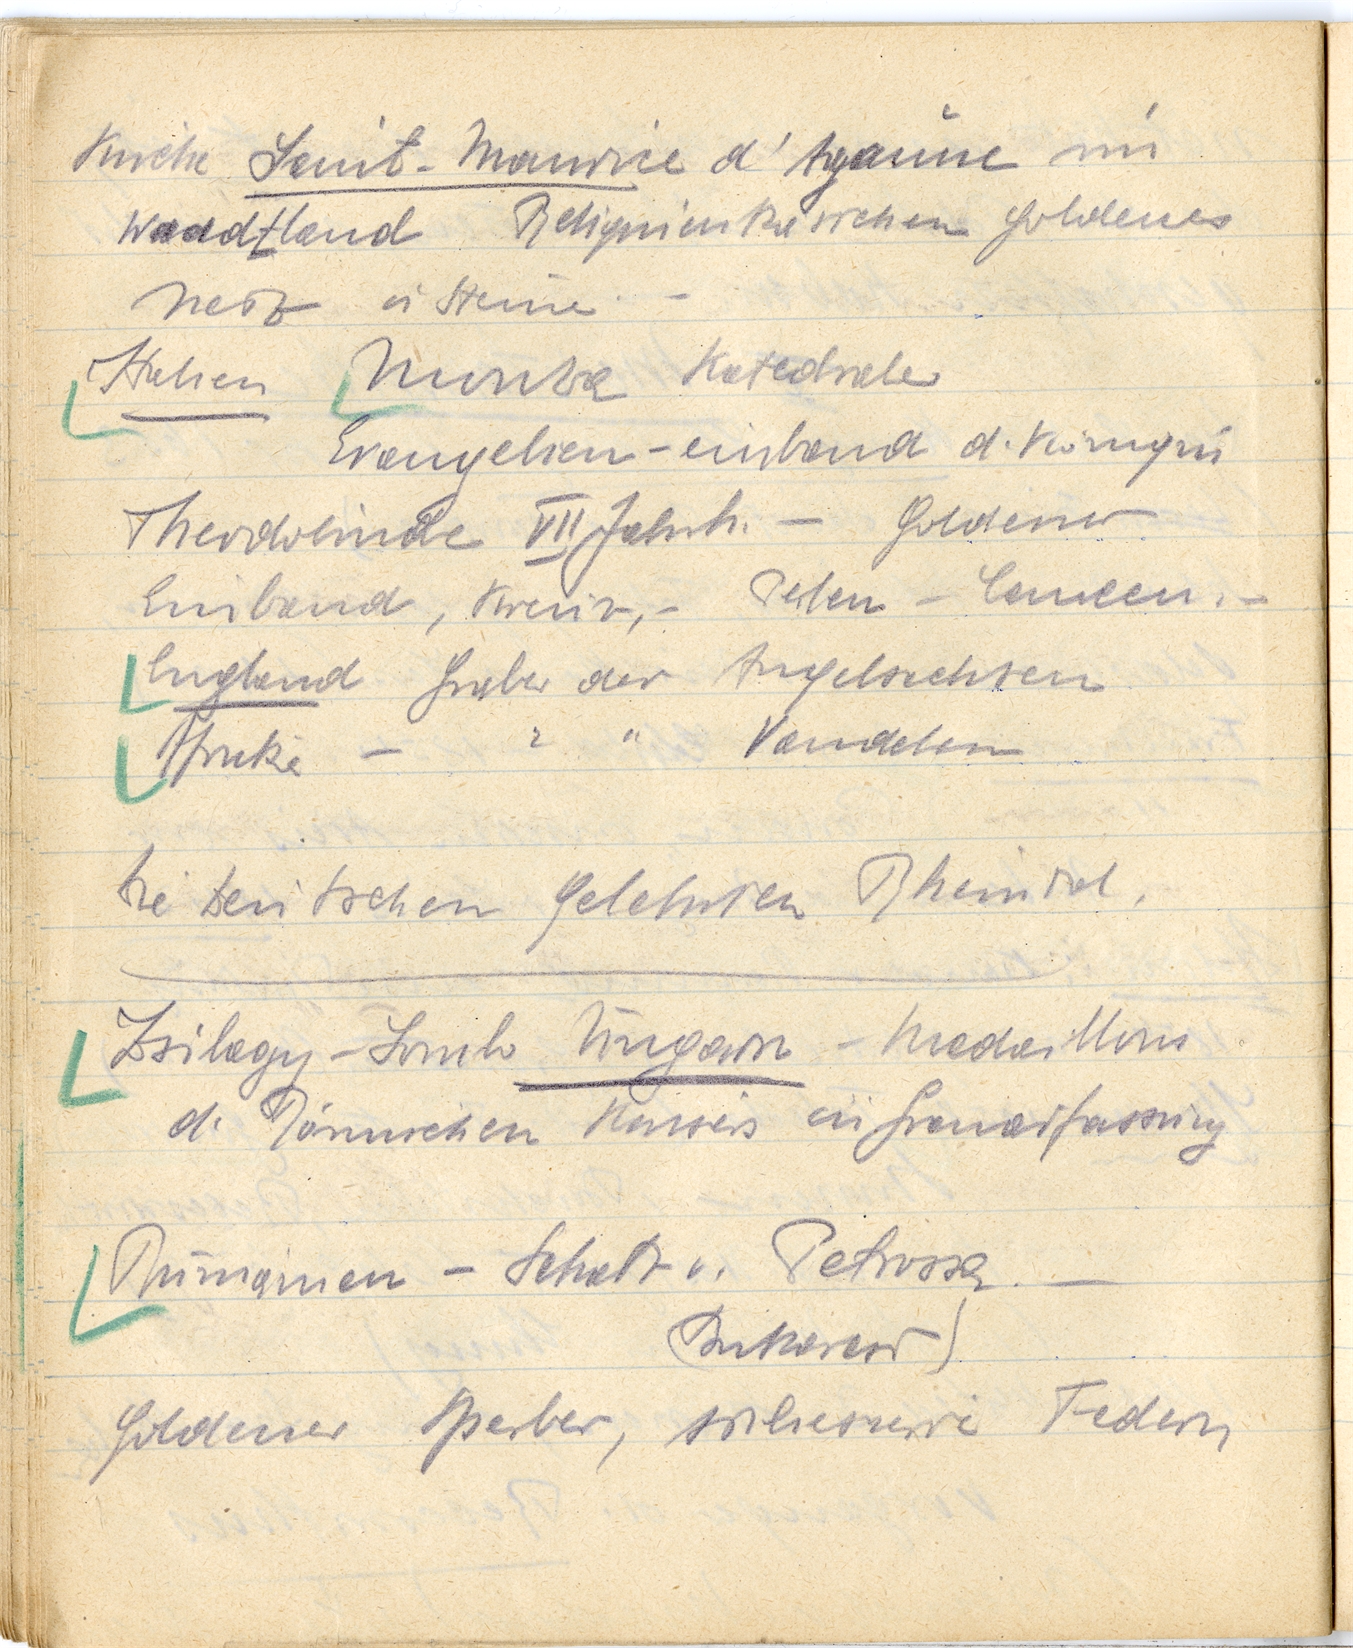 Kirche Saint-Maurice d'Agaune im
Waadtland Reliquienkästchen goldenes
Netz u Steine. -
Italien Monza Katedrale
Evangelien-einband d. Königin
Theodolinde VII Jahrh. - Goldener
Einband, Kreuz, - Perlen - Cameen. -
England Gräber der Angelsachsen
Afrika - " " Vandalen
deutschen Gelehrten Rheintal.
Zsilagy-Somlo Ungarn - Medaillons
d. Römischen Kaisers in Granatfassung
Rumänien - Schatz v. Petrossa. -
(Bukarest)
Goldener Sperber, Federn